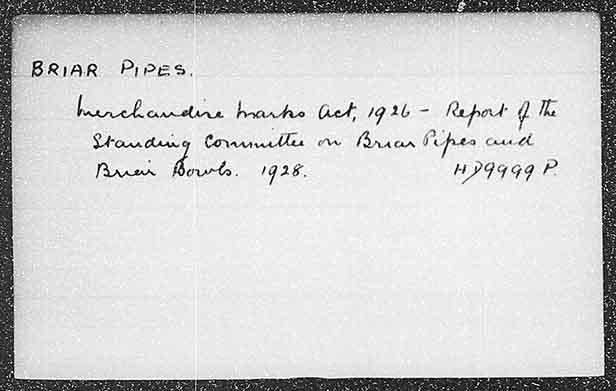 BRIAR PIPES.
Merchandise Marks Act, 1926 - Report of the
Standing Committee on Briar Pipes and
Briar Bowls. 1928. HD9999 P.